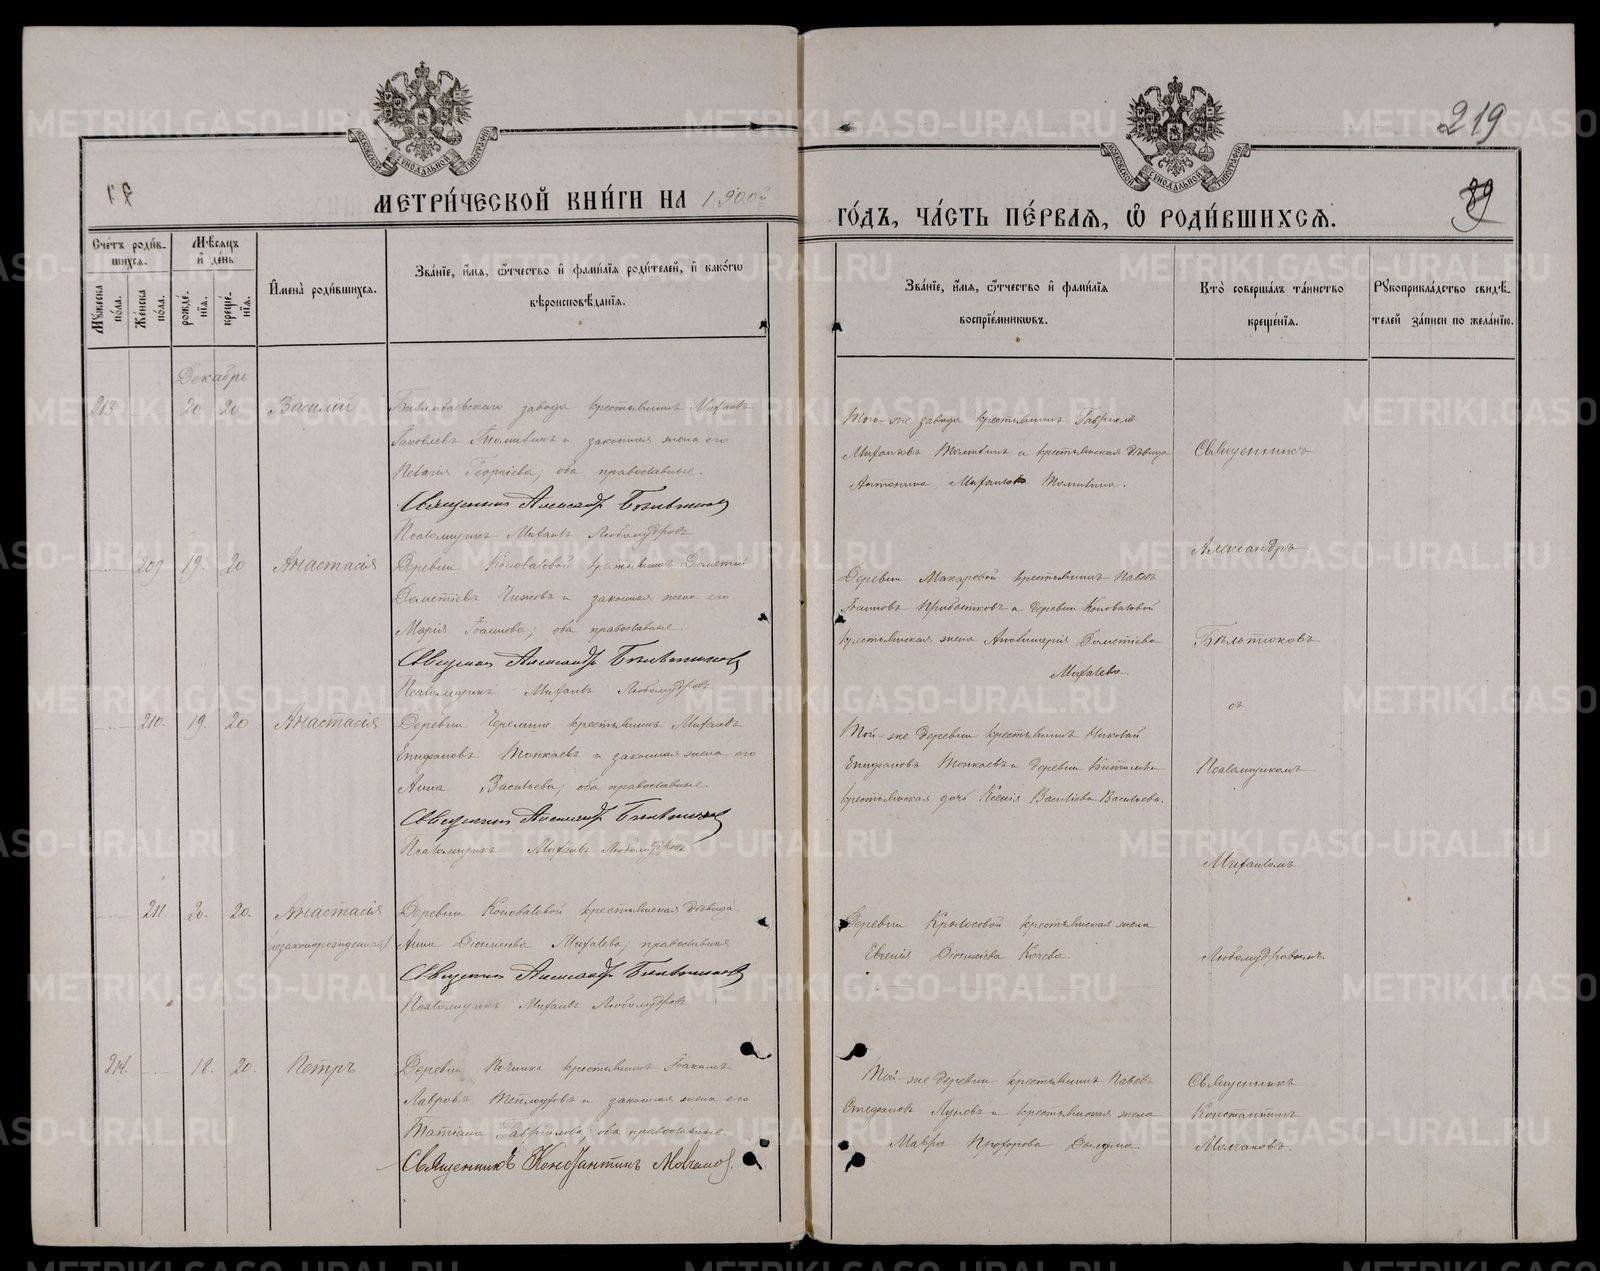 219
89
МЕТРИ́ЧЕСКОЙ КНИ́ГИ НА 1900й
ГО́ДЪ, ЧА́СТЬ ПЕ́РВАЯ, Ѡ҆ РОДИ́ВШИХСЯ.
МОСКОВСКОЙ СѴНОДАЛЬНОЙ ТИПОГРАФІИ
МОСКОВСКОЙ СѴНОДАЛЬНОЙ ТИПОГРАФІИ
Сче́тъ роди́вшихся.
Му́жеска по́ла.
Же́нска по́ла.
Мѣ́сяцъ и҆ де́нь
рожде́нїя.
креще́нїя.
И҆мена̀ роди́вшихся.
Зва́нїе, и҆́мя, ѻ҆́тчество и҆ фами́лїя роди́телей, и҆ како́гѡ
вѣроисповѣ́данїя.
Зва́нїе, и҆́мя, ѻ҆́тчество и҆ фами́лїя
воспрїе́мникѡвъ.
Кто̀ соверша́лъ та́инство
креще́нїя.
Рꙋкоприкла́дство свидѣ́-
телей за́писи по жела́нїю.
Декабрь
213 20. 20 Василій
Билимбаевскаго завода крестьянинъ Михаилъ
Яковлевъ Томилинъ и законная жена его
Пелагія Георгіева; оба православные.
Священникъ Александръ Бѣльтюковъ
Псаломщикъ Михаилъ Любомудровъ
Того-же завода крестьянинъ Гавріилъ
Михаиловъ Томилинъ и крестьянская дѣвица
Антонина Михаилова Томилина.
Священникъ
Александръ
Бѣльтюковъ
съ
Псаломщикомъ
Михаиломъ
Любомудровымъ.
209 19. 20 Анастасія
Деревни Коноваловой крестьянинъ Дометій
Дометіевъ Чижовъ и законная жена его
Марія Іоаннова; оба православные.
Священникъ Александръ Бѣльтюковъ
Псаломщикъ Михаилъ Любомудровъ
Деревни Макаровой крестьянинъ Павелъ
Іоанновъ Прибытковъ и деревни Коноваловой
крестьянская жена Дометіева
Михалева.
210. 19. 20 Анастасія
Деревни Черемши крестьянинъ Михаилъ
Епифановъ Топкаевъ и законная жена его
Анна Васильева; оба православные.
Священникъ Александръ Бѣльтюковъ
Псаломщикъ Михаилъ Любомудровъ
Той-же деревни крестьянинъ Николай
Епифановъ Топкаевъ и деревни
крестьянская дочь Ксенія Василіева Васильева.
211. 20. 20. Анастасія
(незаконнорожденная)
Деревни Коноваловой крестьянская дѣвица
Анна Діонисіева Михалева; православная
Священникъ Александръ Бѣльтюковъ
Псаломщикъ Михаилъ Любомудровъ
Деревни Крылосовой крестьянская жена
Евгенія Діонисіева Кочева.
214. 18. 20. Петръ
Деревни Починка крестьянинъ Іоакимъ
Лавровъ Тепляуховъ и законная жена его
Татіана Гавріилова; оба православные.
Священникъ Константинъ Молчановъ.
Той-же деревни крестьянинъ Павелъ
Стефановъ Лупевъ и крестьянская жена
Мавра Прохорова
Священникъ
Константинъ
Молчановъ.
METRIKI.GASO-URAL.RU